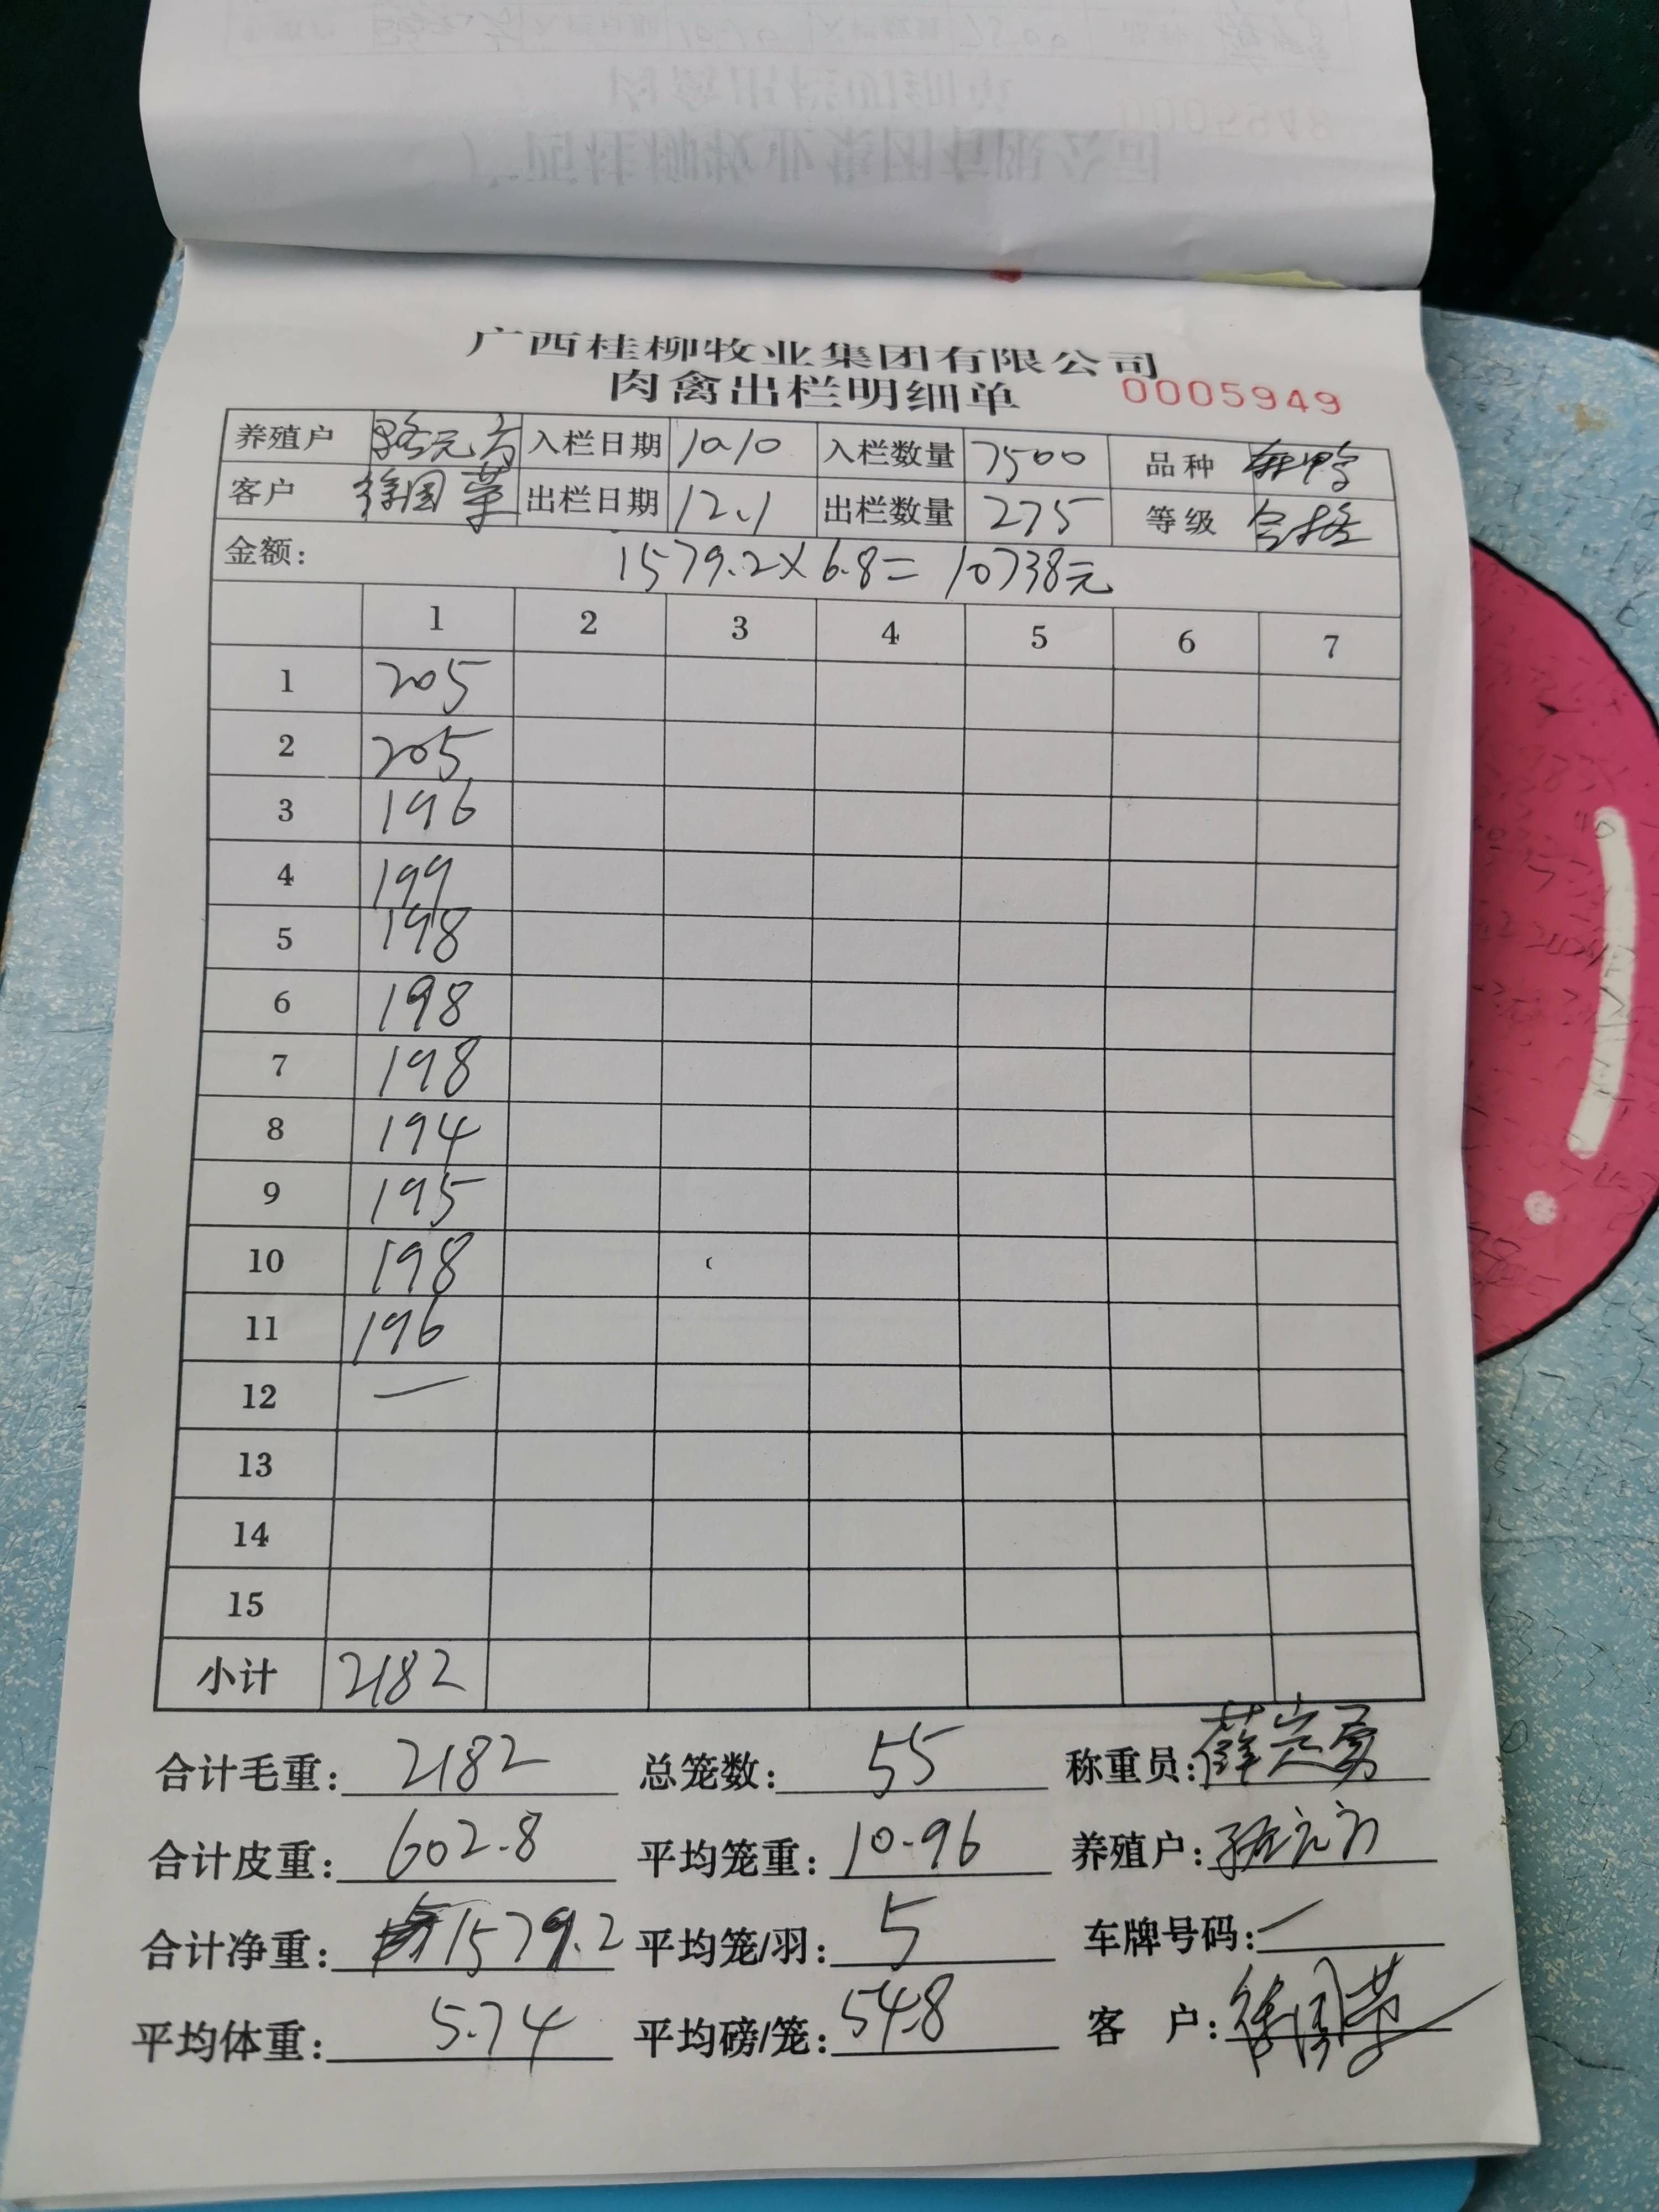 广西桂柳牧业集团有限公司
肉禽出栏明细单 0005949
养殖户 路元方 入栏日期 10.10 入栏数量 7500 品种 麻鸭
客户 徐国荣 出栏日期 12.1 出栏数量 275 等级 合格
金额: 1579.2×6.8=10738元
1 2 3 4 5 6 7
1 205
2 205
3 196
4 199
5 198
6 198
7 198
8 194
9 195
10 198
11 196
12 —
13
14
15
小计 2182
合计毛重: 2182 总笼数: 55 称重员: 薛定勇
合计皮重: 602.8 平均笼重: 10.96 养殖户: 路元方
合计净重: 1579.2 平均笼/羽: 5 车牌号码: —
平均体重: 5.74 平均磅/笼: 54.8 客 户: 徐国荣